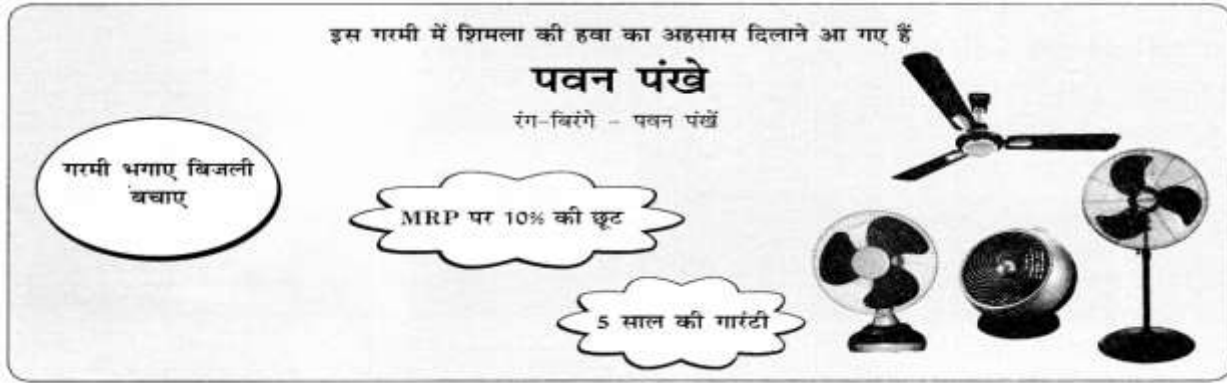 इस गरमी में शिमला की हवा का अहसास दिलाने आ गए हैं
पवन पंखे
रंग-बिरंगे - पवन पंखें
गरमी भगाए बिजली
बचाए
MRP पर 10% की छूट
5 साल की गारंटी